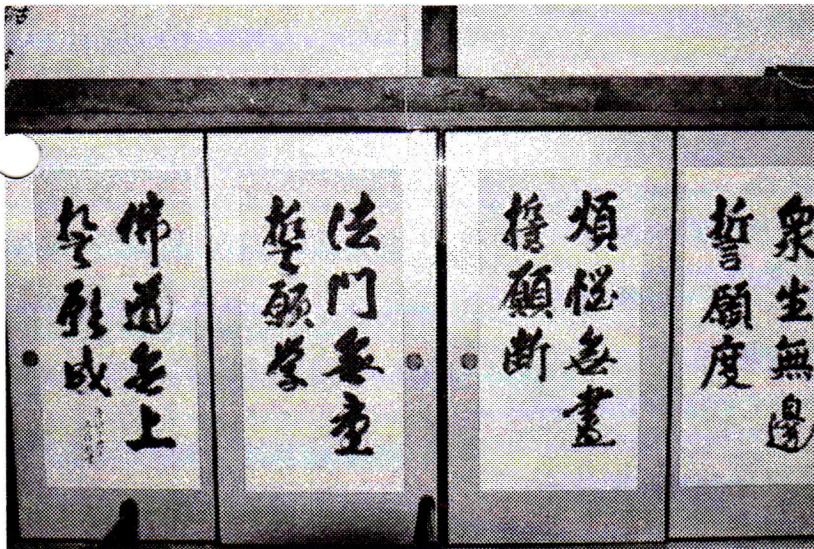 衆生無邊
誓願度
煩惱無盡
誓願断
法門無量
誓願学
佛道無上
誓願成